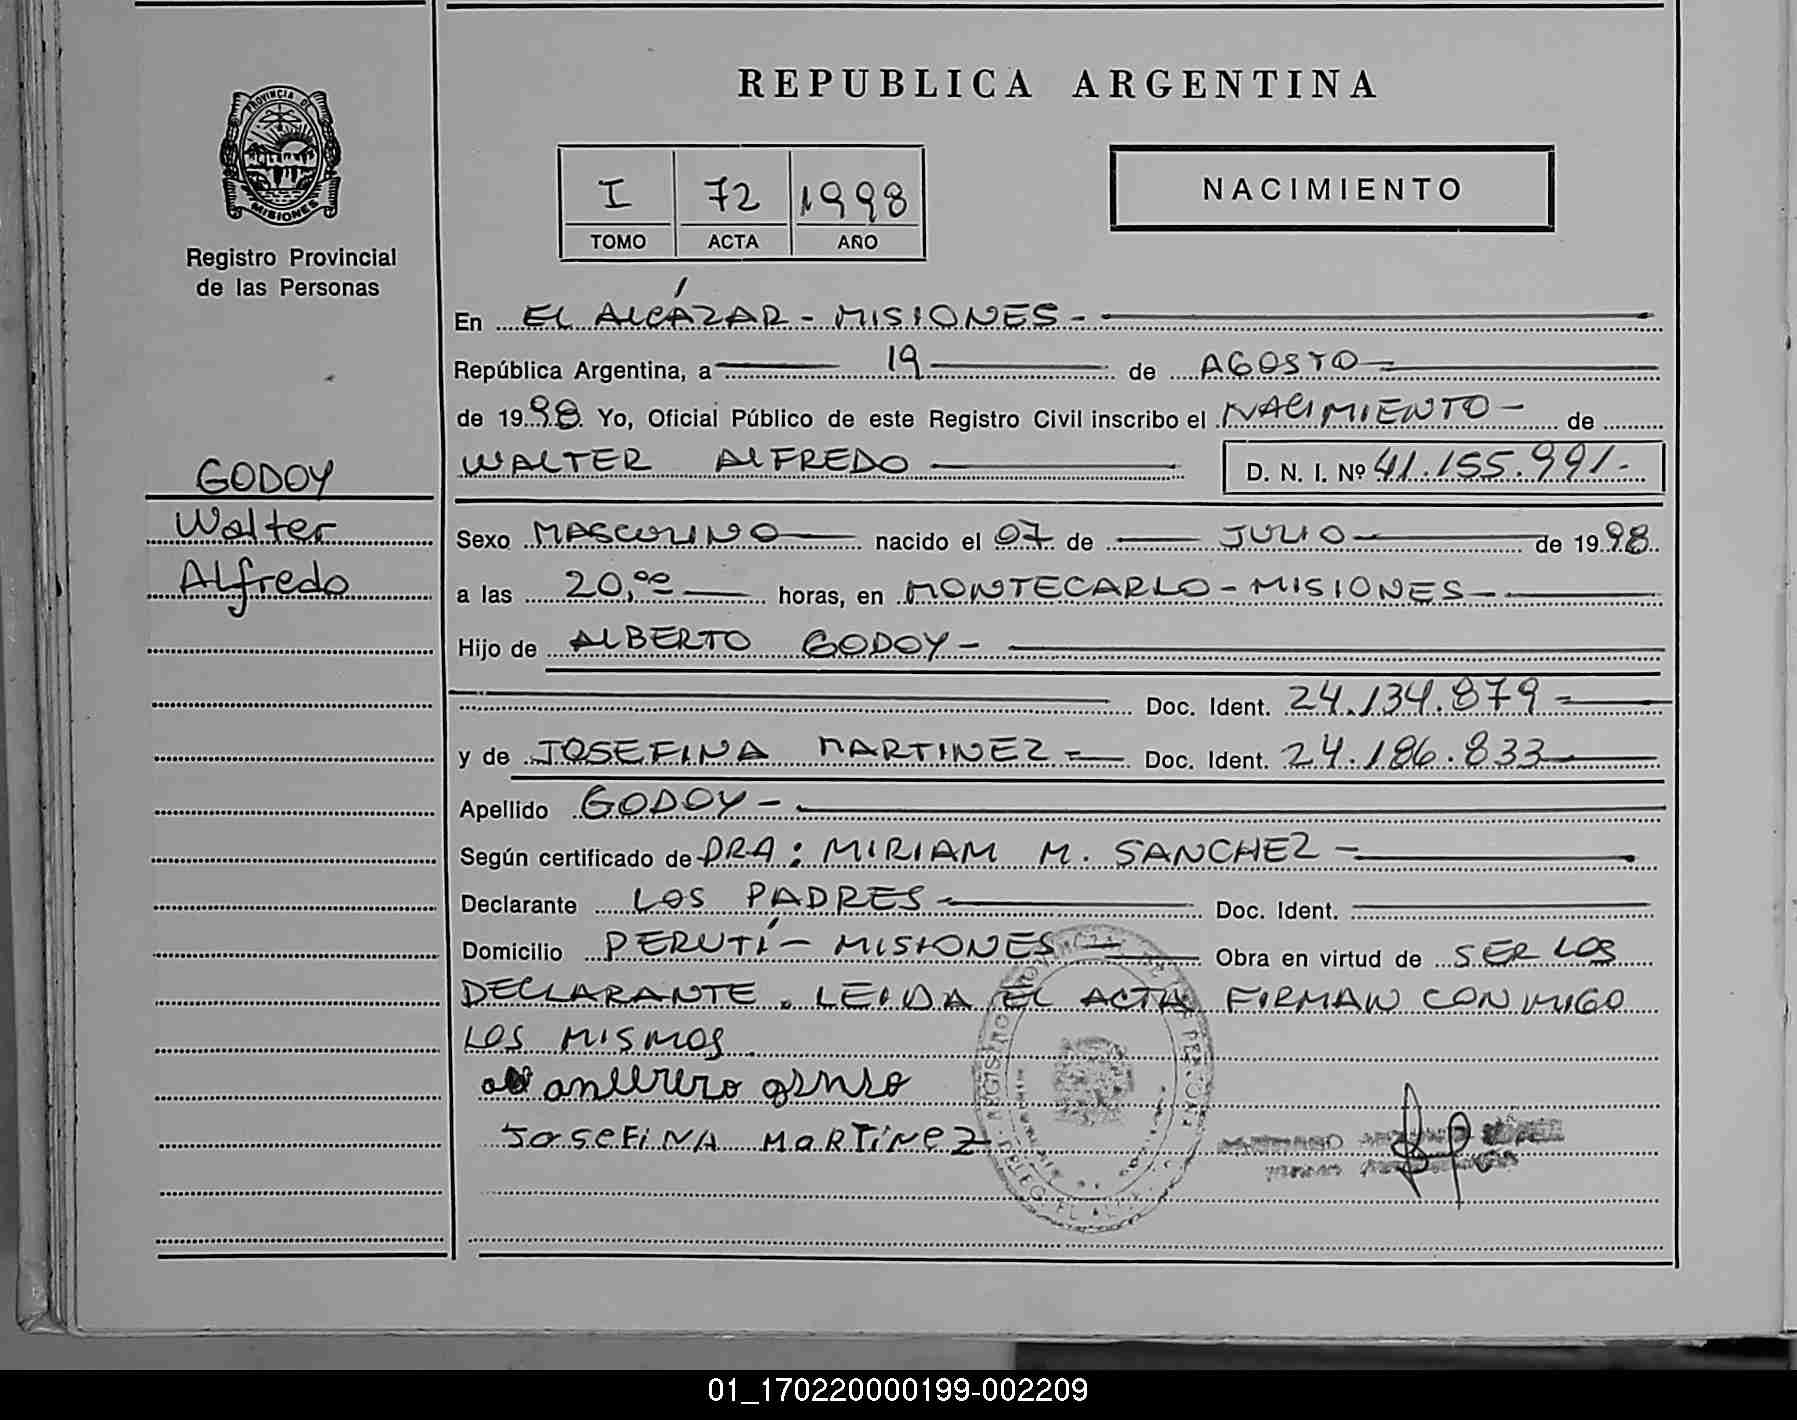 REPUBLICA ARGENTINA
PROVINCIA DE
MISIONES
Registro Provincial
de las Personas
I 72 1998
TOMO ACTA AÑO
NACIMIENTO
En EL ALCÁZAR - MISIONES -
República Argentina, a 19 de AGOSTO
de 1998 Yo, Oficial Público de este Registro Civil inscribo el NACIMIENTO - de
WALTER ALFREDO D. N. I. Nº 41.155.991.-
GODOY
Walter
Alfredo
Sexo MASCULINO nacido el 07 de JULIO de 1998
a las 20,00 horas, en MONTECARLO - MISIONES -
Hijo de ALBERTO GODOY -
Doc. Ident. 24.134.879
y de JOSEFINA MARTINEZ Doc. Ident. 24.186.833
Apellido GODOY -
Según certificado de DRA: MIRIAM M. SANCHEZ -
Declarante LOS PADRES Doc. Ident.
Domicilio PERUTÍ - MISIONES Obra en virtud de SER LOS
DECLARANTE. LEIDA EL ACTA FIRMAN CONMIGO
LOS MISMOS.
JOSEFINA MARTINEZ
01_170220000199-002209